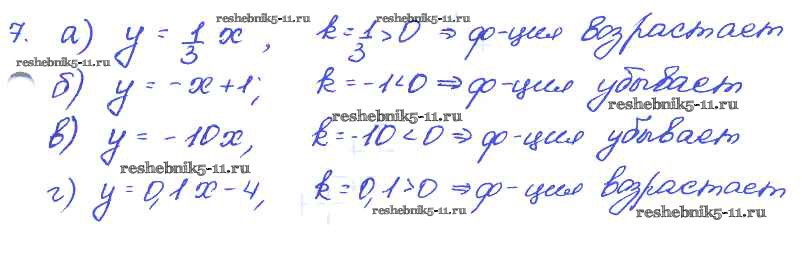 reshebnik5-11.ru reshebnik5-11.ru
7. а) y = 1/3 x, k = 1/3 > 0 ⇒ ф-ция возрастает
reshebnik5-11.ru
б) y = -x+1; k = -1 < 0 ⇒ ф-ция убывает
reshebnik5-11.ru reshebnik5-11.ru
в) y = -10x, k = -10 < 0 ⇒ ф-ция убывает
reshebnik5-11.ru
г) y = 0,1x - 4, k = 0,1 > 0 ⇒ ф-ция возрастает
reshebnik5-11.ru reshebnik5-11.ru